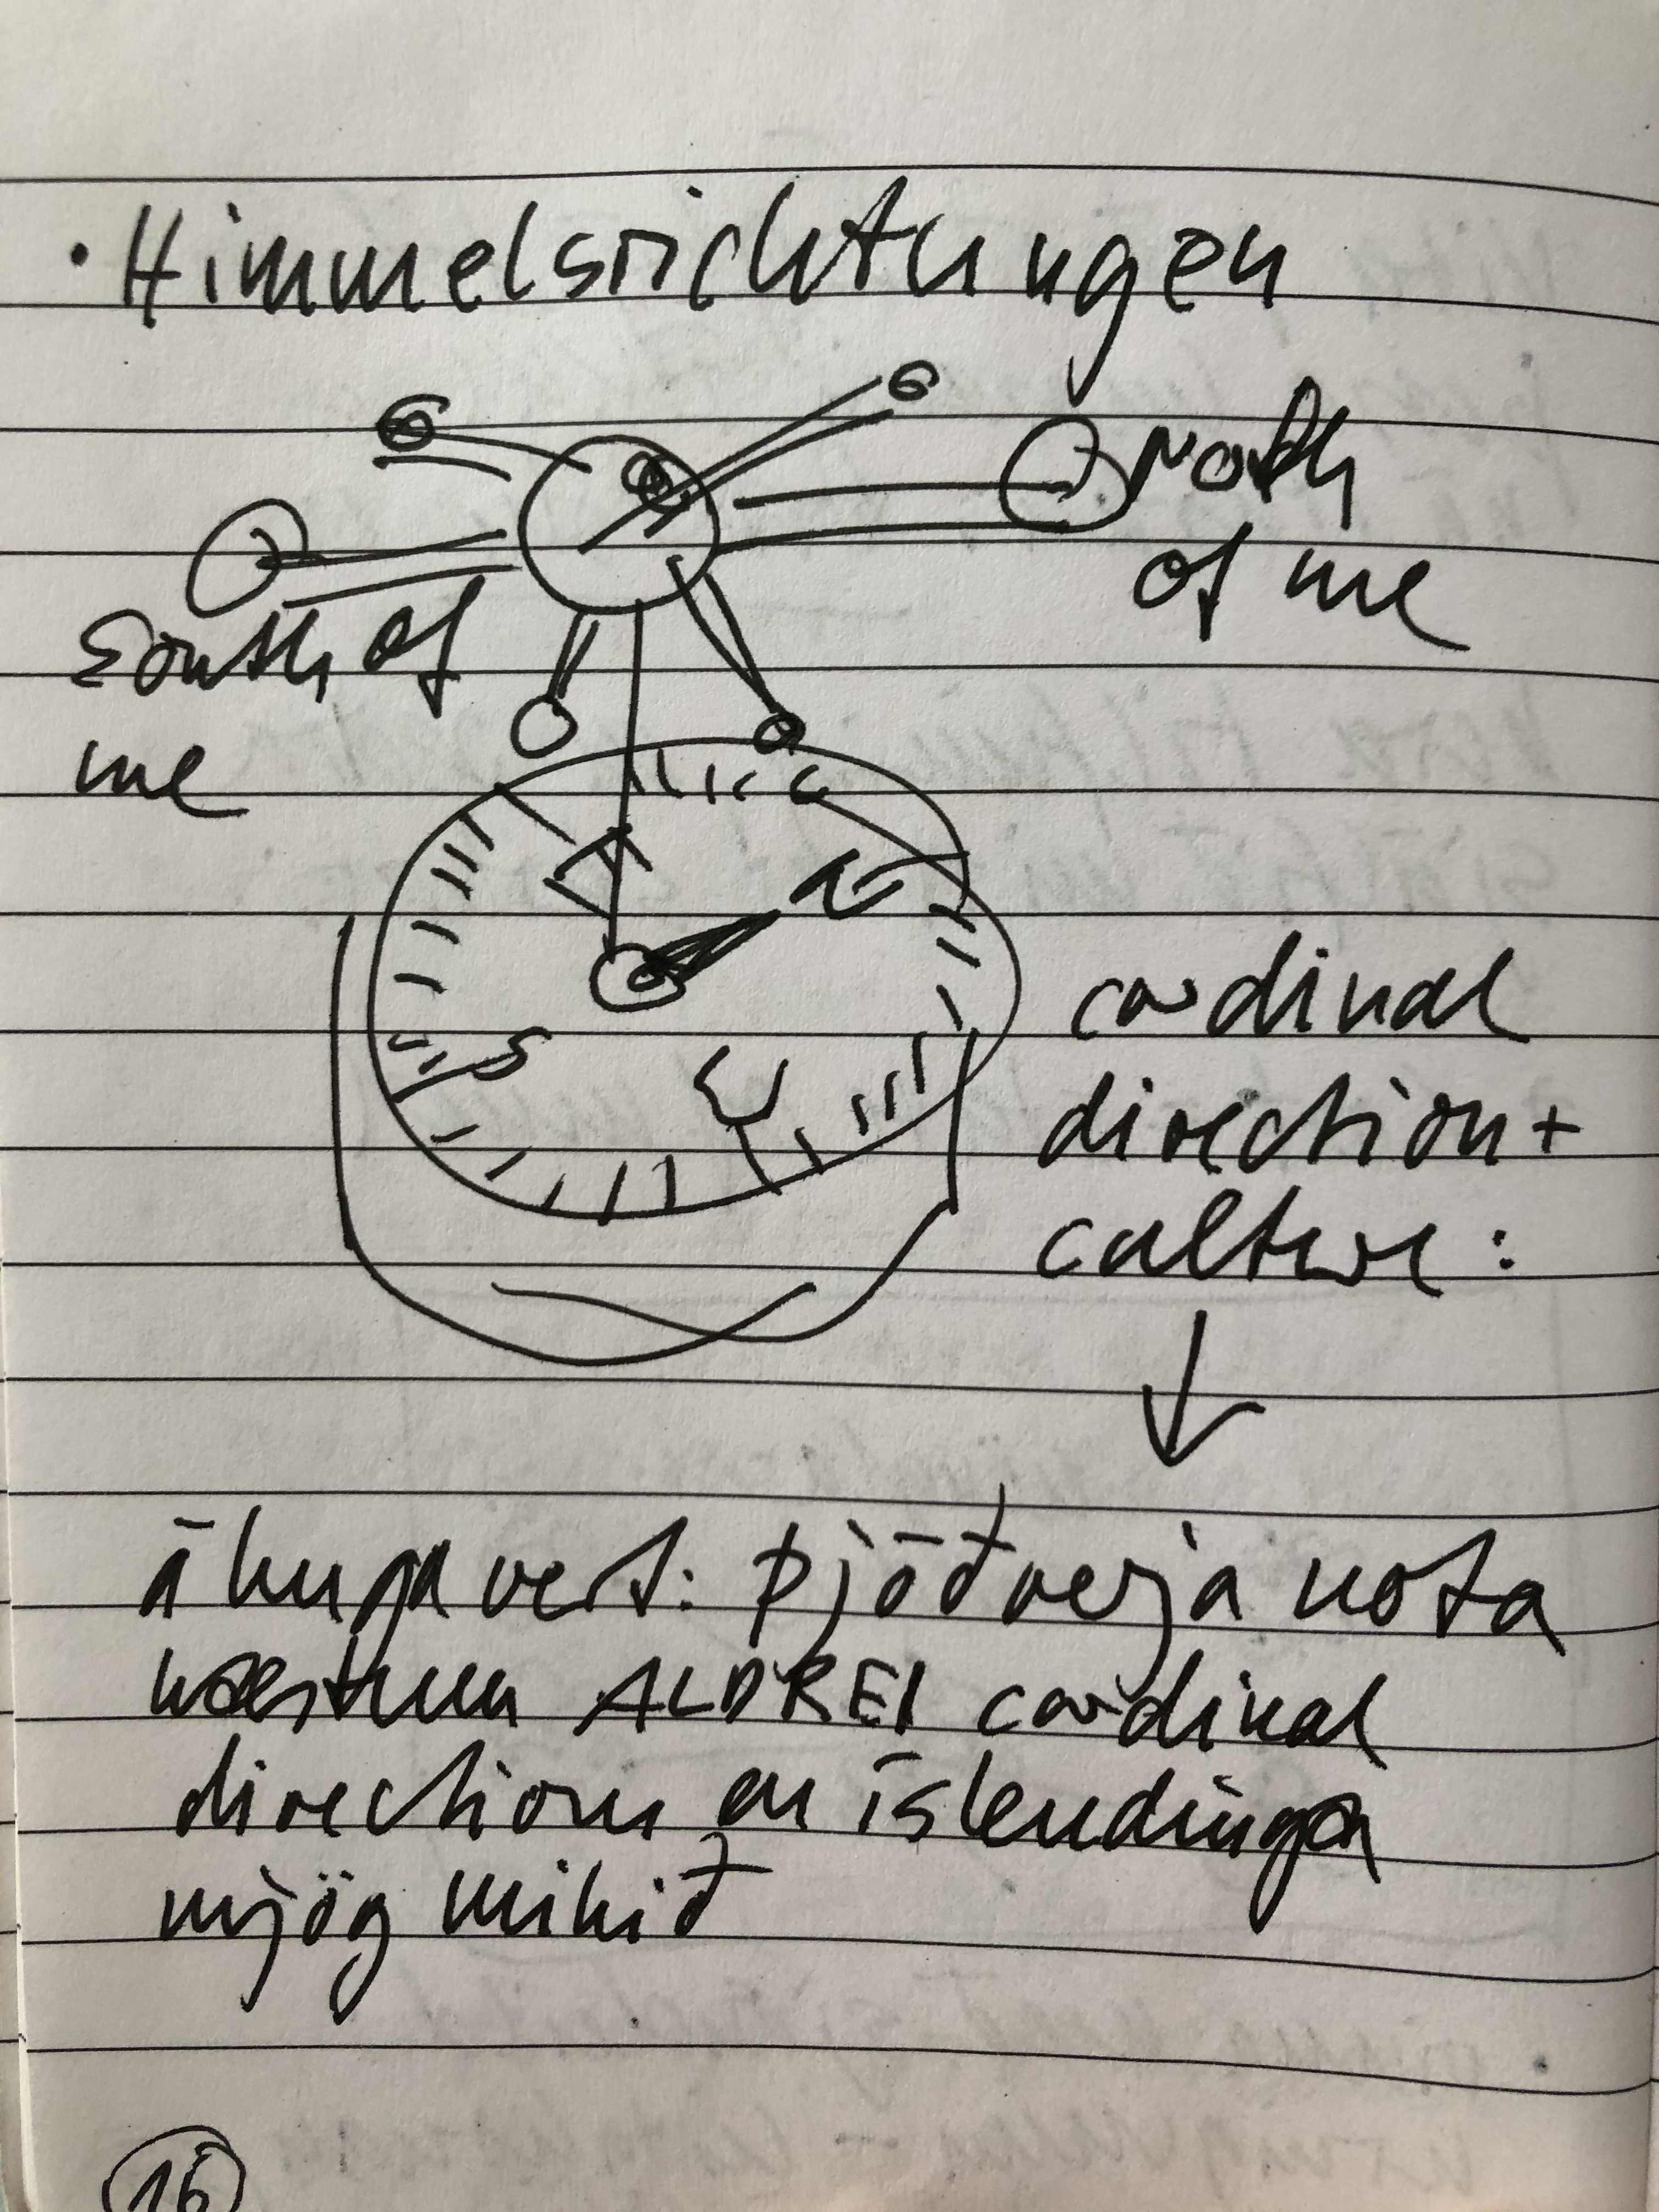 • Himmelsrichtungen
North
of me
South of
me
N
S
cardinal
direction +
culture:
áhugavert: þjóðverja nota
næstum ALDREI cardinal
directions en íslendinga
mjög mikið
16